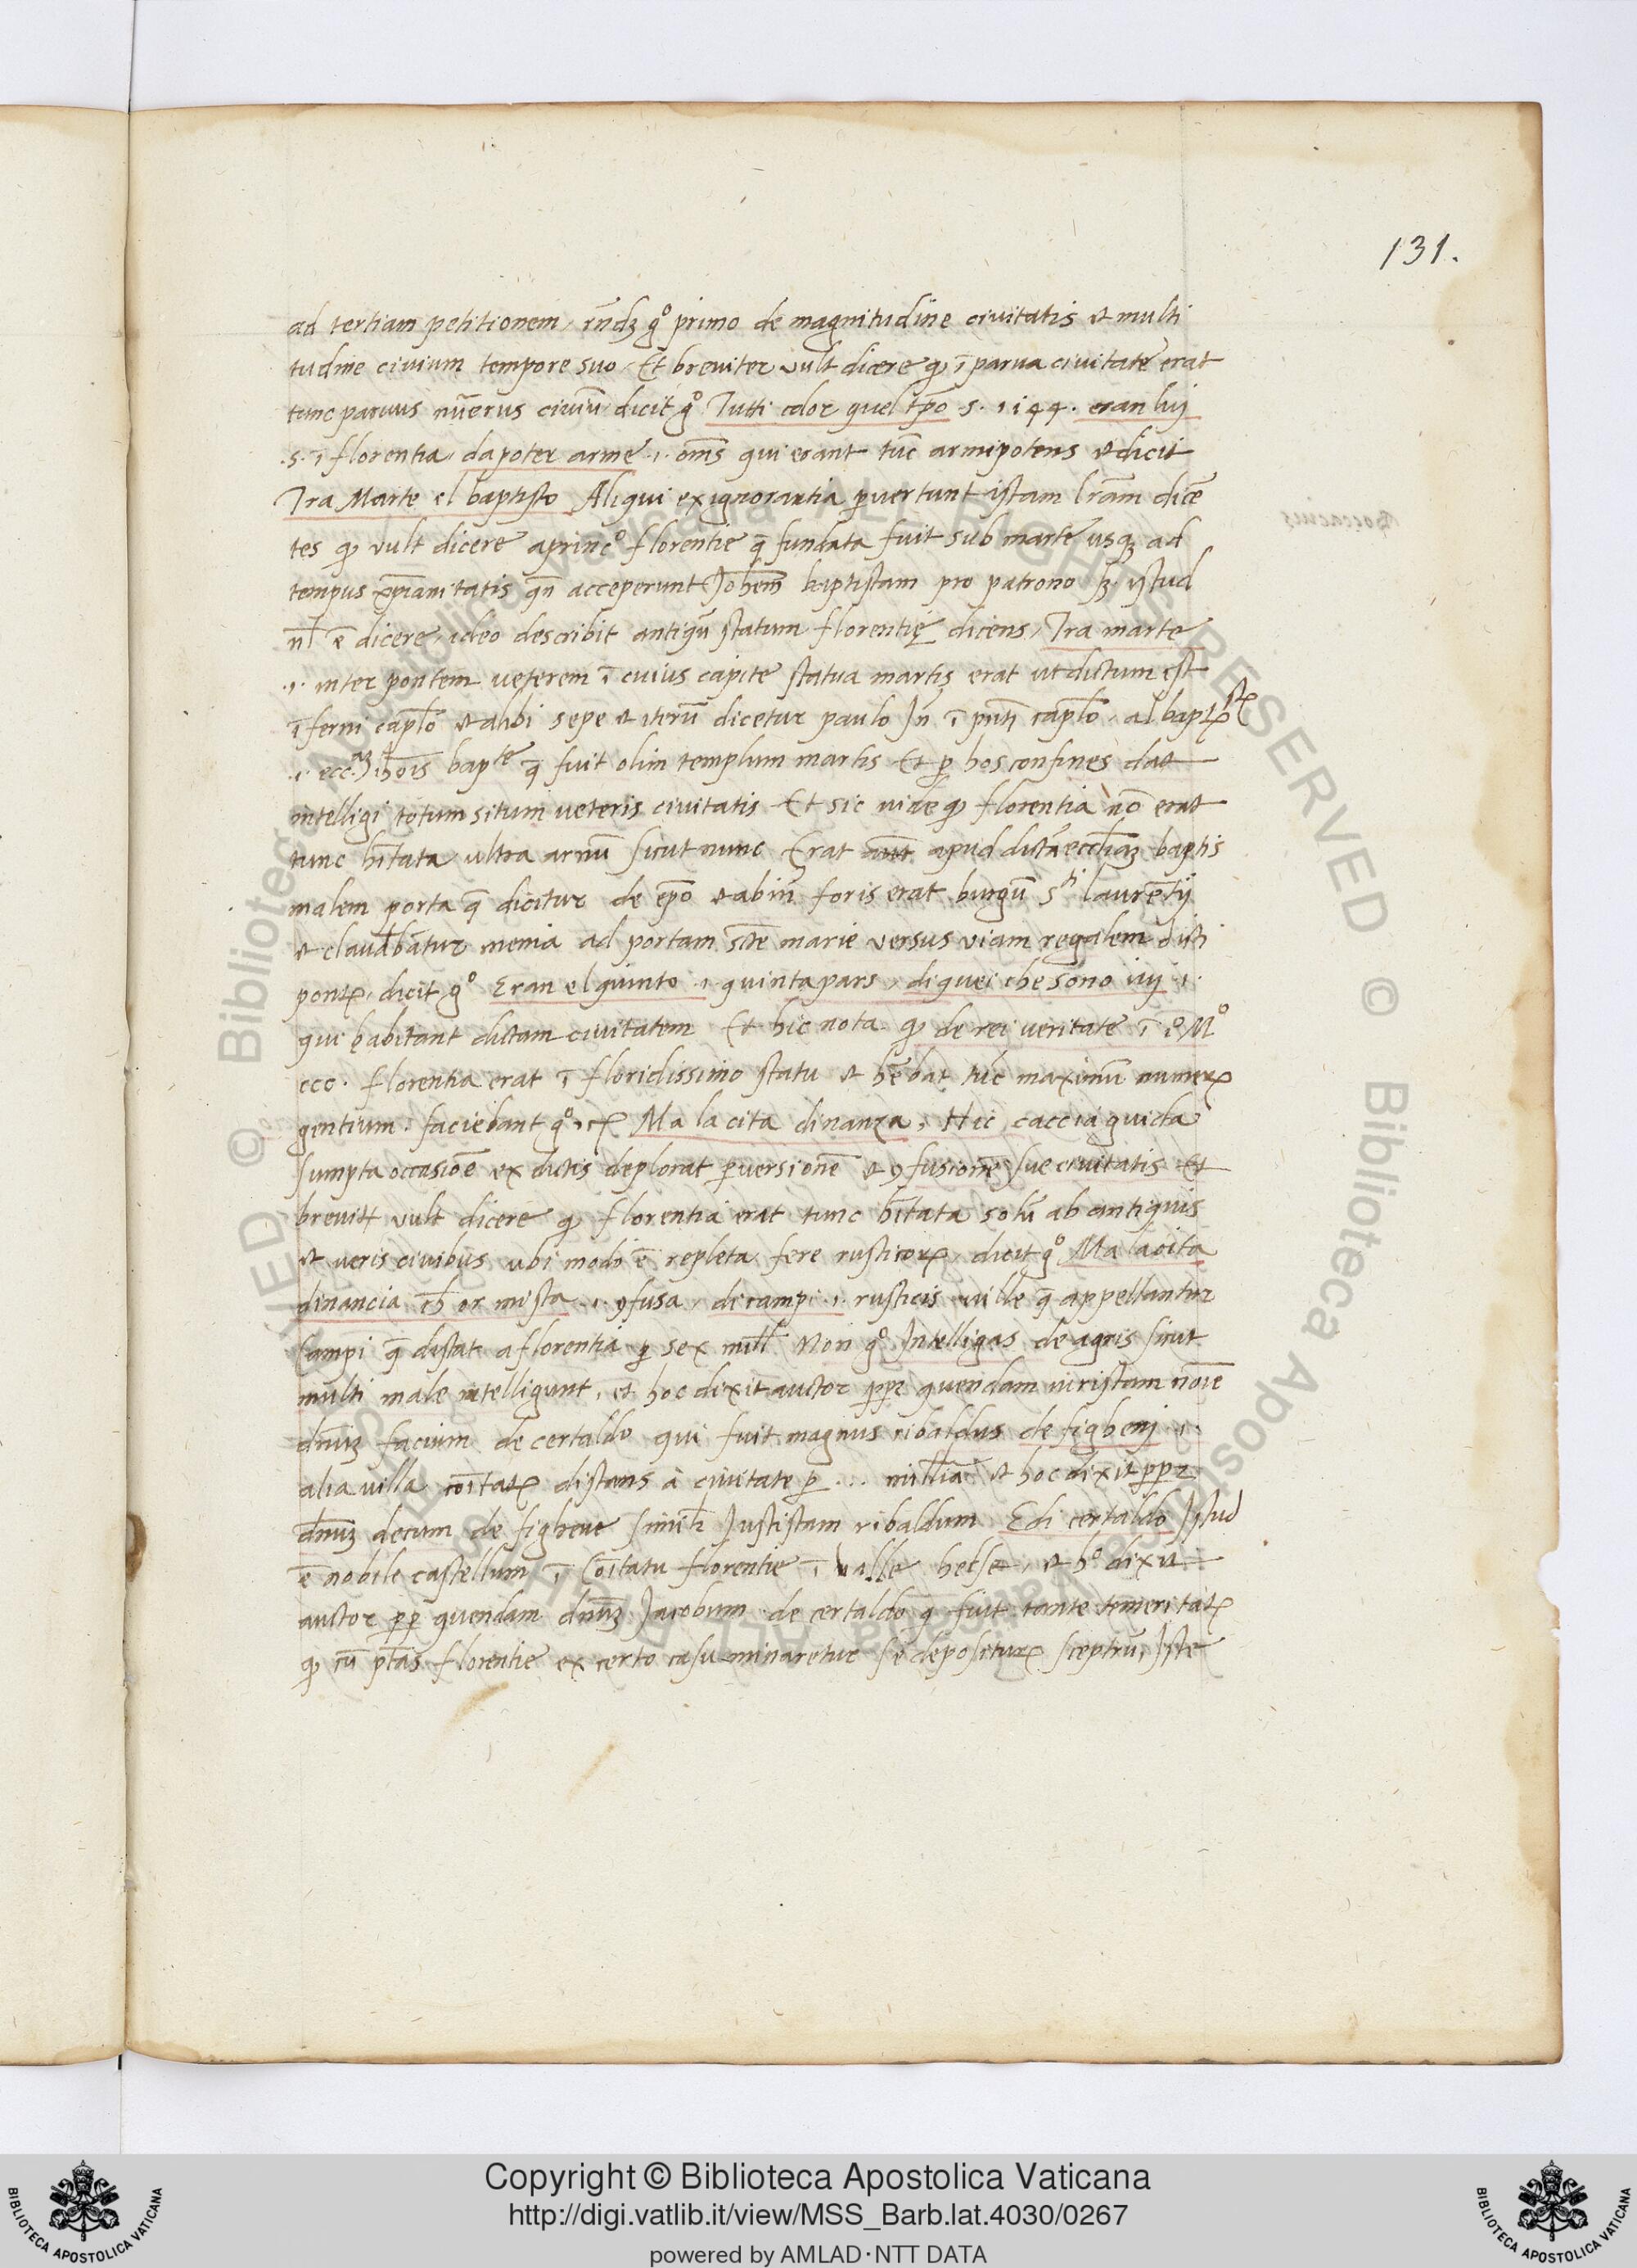 131.
ad tertiam petitionem, rñdꝫ g° primo de magnitudine civitatis et multi
tudine civium tempore suo. Et breviter vult dicere qꝫ ī parva civitate erat
tunc parvus nūerus civiū dicit g° Tutti color quel tp̄o s. 1144. eran livj
.s. ī florentia, dapoter arme .i. om̄s qui erant tūc armipotens et dicit
Tra Marte el baptisto Aliqui ex ignorantia pvertunt istam l̄ram dicē
tes qꝫ vult dicere a princ° florentie q̄ fundata fuit sub marte usqꝫ ad
tempus xp̄ianitatis qn̄ acceperunt Joh̄em baptistam pro patrono sꝫ istud
nl̄ ē dicere, ideo describit antiqū statum florentię dicens, Tra marte
.i. inter pontem veterem ī cuius capite statua martis erat ut dictum est
īferni cap̄lo et alibi sepe et iterū dicetur paulo In̄. ī pn̄ti cap̄lo, al bapt°
.i. ecc.am Johīs bapte q̄ fuit olim templum martis Et p̱ hos confines dat
intelligi totum situm veteris civitatis Et sic vide qꝫ florentia nō erat
tunc hītata ultra arnū sicut nunc Erat aut̄ apud dictā ecclīaꝫ baptis
malem porta q̄ dicitur de ep̄o et abin̄ foris erat burgū sti laurētij
et claudebātur menia ad portam sc̄te marie versus viam regalem dicti
pontꝭ, dicit g° Eran el quinto .i. quinta pars, di quei che sono ivj .i.
qui habitant dictam civitatem Et hic nota qꝫ de rei veritate ī i° M°
ccc. florentia erat ī floridissimo statu et hēbat tūc maximū numerꝝ
gentium. faciebant g° Ma la cita dinanza, Hic cacciaguida
sumpta occasiōe ex dictis deplorat pversionē et ꝯfusionē sue civitatis Et
brevitꝭ vult dicere qꝫ florentia erat tunc hītata solū ab antiquis
et veris civibus, ubi modo ē repleta fere rusticorꝝ, dicit g° Ma la cita
dinancia ch̄ or mista .i. ꝯfusa, de campi .i. rusticis ville q̄ appellantur
Campi q̄ distat a florentia p̱ sex mill̄ Non g° Intelligas de agris sicut
multi male intelligunt, et hoc dixit auctor pp̱ quendam iuristam nōie
dn̄uꝫ facium de certaldo qui fuit magnus ribaldus de fighenj .i.
alia villa coītatꝭ distans à civitate p̱ ... millia et hoc dixit pp̱
dn̄uꝫ decum de fighene simil̄r Justistam ribaldum Edi certaldo Istud
ē nobile castellum ī Coītatu florentie ī valle helse, et h° dixit
auctor pp̱ quendam dn̄uꝫ Jacobum de certaldo q̄ fuit tante temeritatꝭ
qꝫ cū p̄tas florentie ex certo casu minaretur se depositurꝝ sceptrū, Iste
Copyright © Biblioteca Apostolica Vaticana
http://digi.vatlib.it/view/MSS_Barb.lat.4030/0267
powered by AMLAD·NTT DATA
BIBLIOTECA APOSTOLICA VATICANA
BIBLIOTECA APOSTOLICA VATICANA